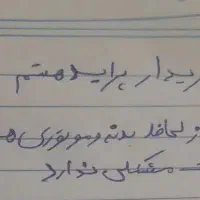 ریدار پراید هستم
ز لحاظ بدنه و موتوری ه
مشکلی ندارد